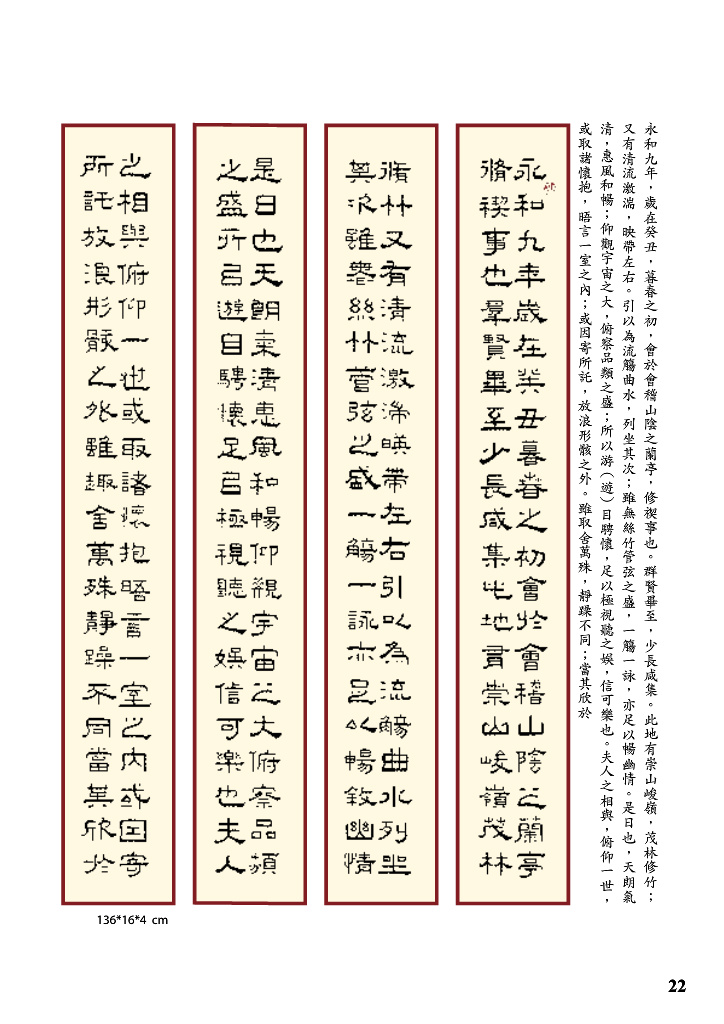 永和九年，歲在癸丑，暮春之初，會於會稽山陰之蘭亭，修禊事也。群賢畢至，少長咸集。此地有崇山峻嶺，茂林修竹；
又有清流激湍，映帶左右。引以為流觴曲水，列坐其次；雖無絲竹管弦之盛，一觴一詠，亦足以暢幽情。是日也，天朗氣
清，惠風和暢；仰觀宇宙之大，俯察品類之盛；所以游（遊）目騁懷，足以極視聽之娛，信可樂也。夫人之相與，俯仰一世，
或取諸懷抱，晤言一室之內；或因寄所託，放浪形骸之外。雖取舍萬殊，靜躁不同；當其欣於
永和九年歲在癸丑暮春之初會於會稽山陰之蘭亭
脩禊事也羣賢畢至少長咸集此地有崇山峻嶺茂林
脩竹又有清流激湍暎帶左右引以為流觴曲水列坐
其次雖無絲竹管弦之盛一觴一詠亦足以暢敘幽情
是日也天朗氣清惠風和暢仰觀宇宙之大俯察品類
之盛所以遊目騁懷足以極視聽之娛信可樂也夫人
之相與俯仰一世或取諸懷抱晤言一室之內或因寄
所託放浪形骸之外雖趣舍萬殊靜躁不同當其欣於
136*16*4 cm
22